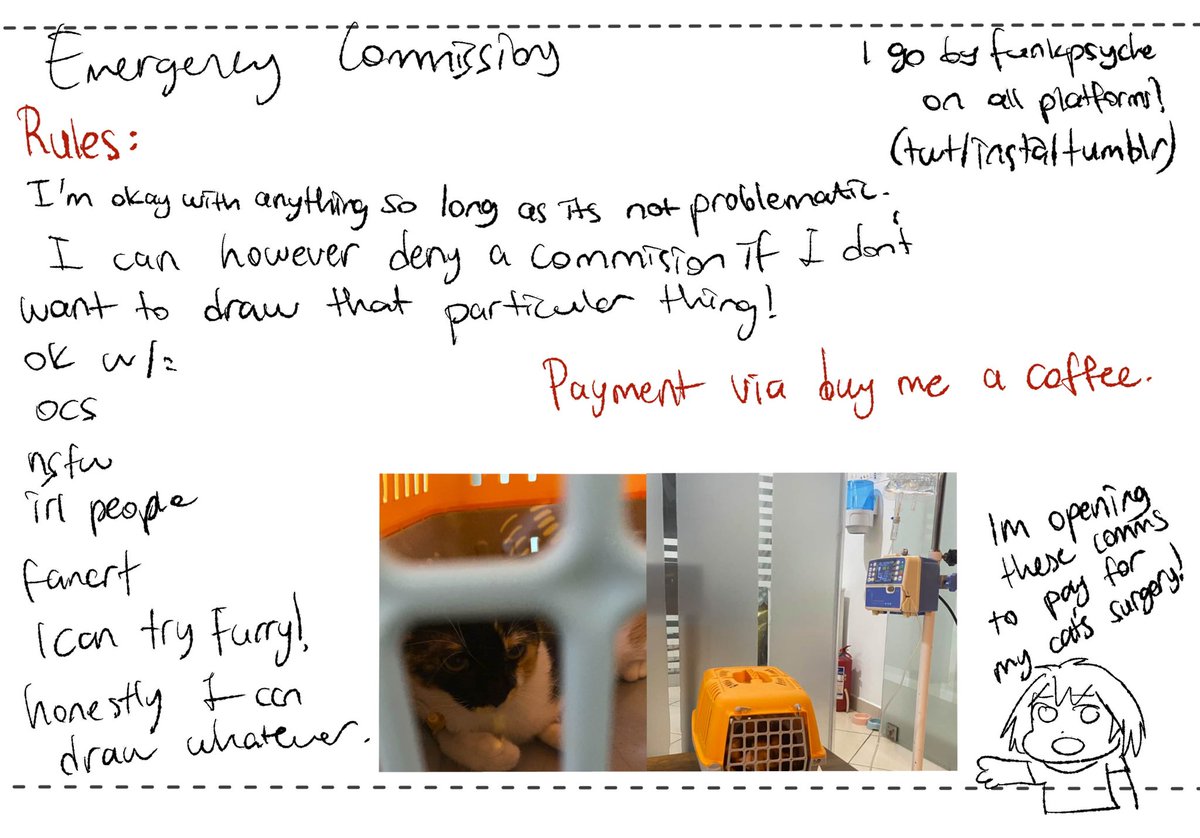 Emergency Commission
I go by funkpsyche
on all platforms!
(twt/insta/tumblr)
Rules:
I'm okay with anything so long as its not problematic.
I can however deny a commision if I don't
want to draw that particular thing!
ok w/:
ocs
nsfw
irl people
fanart
I can try furry!
honestly I can
draw whatever.
Payment via buy me a coffee.
Im opening
these comms
to pay for
my cat's surgery!